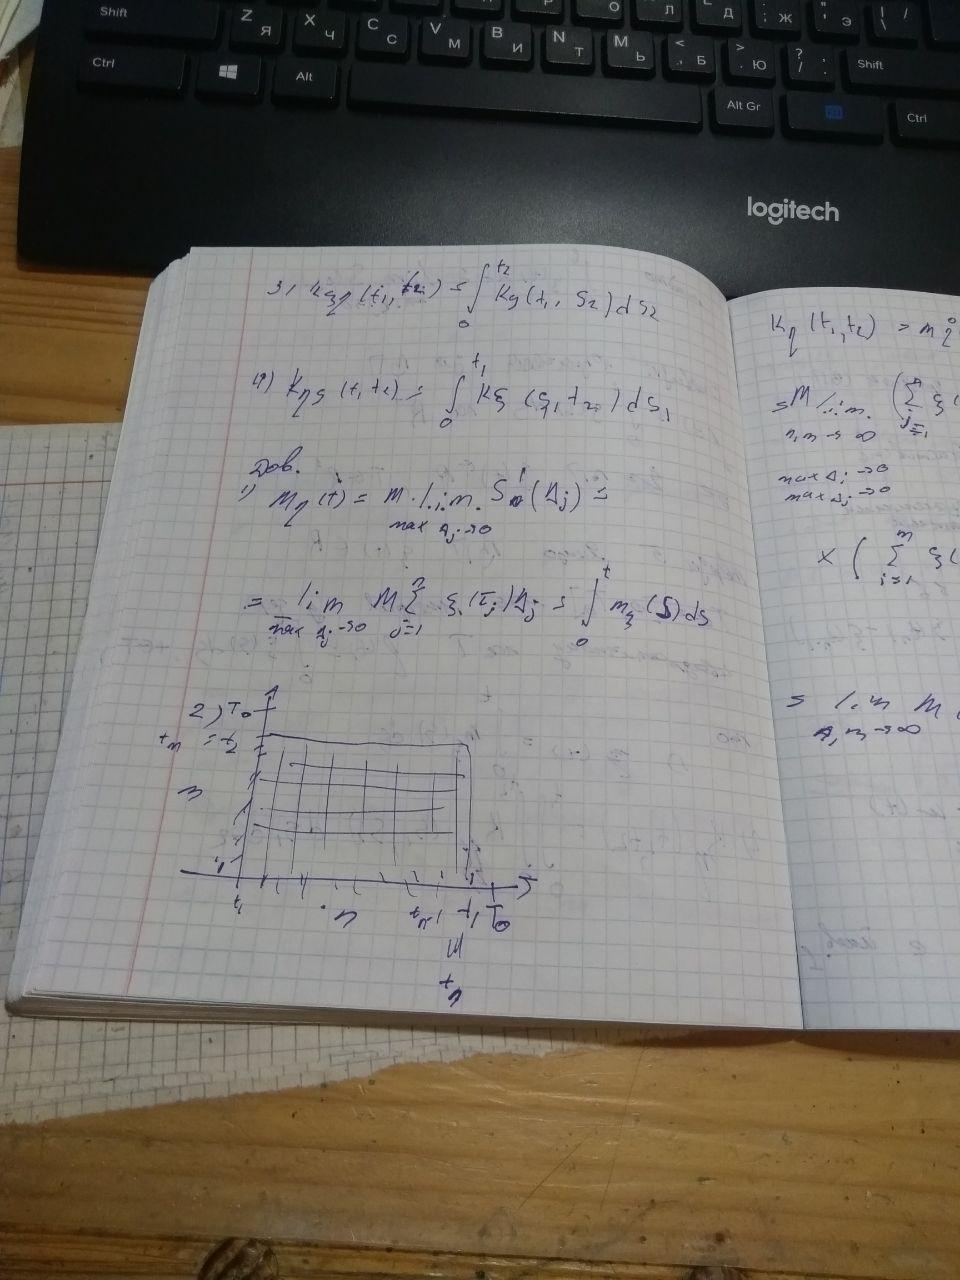 Shift Z Я X Ч C С V М B И N Т M Ь < , Б > . Ю ? / . Shift
Ctrl Alt Alt Gr Ctrl
logitech
3) K_{ξη}(t_1, t_2) = ∫_0^{t_2} K_ξ(t_1, s_2) ds_2
4) K_{ηξ}(t_1 t_2) = ∫_0^{t_1} K_ξ(s_1 t_2) ds_1
Дов.
1) M_η(t) = M l.i.m. S(Δ_j) =
max Δ_j → 0
= lim M Σ_{j=1}^{n} ξ(τ_j) Δ_j = ∫_0^t m_ξ(s) ds
max Δ_j → 0
2) T_0
t_m = t_2
m
t_1 n t_{n-1} t_1 T_0
t_n
K_η(t_1, t_2) = m
= M l.i.m. (Σ_{j=1}^{n} ξ(
n, m → ∞
max Δ_i → 0
max Δ_j → 0
x (Σ_{i=1}^{m} ξ(
= lim M
n, m → ∞